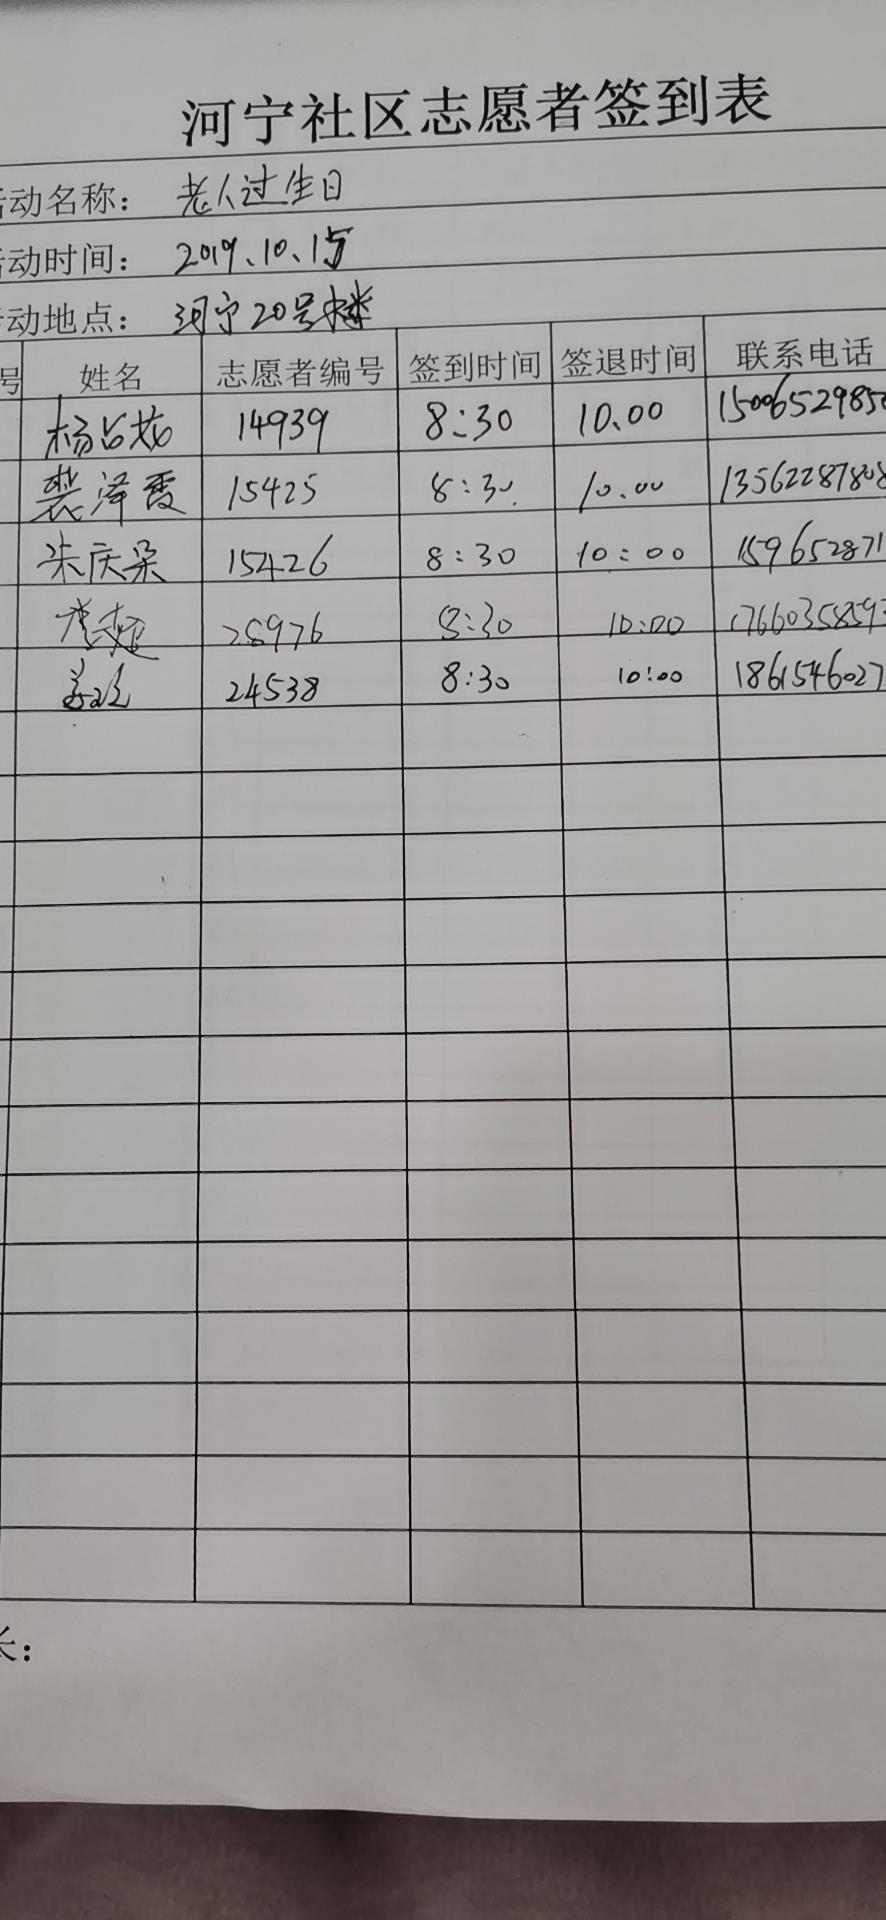 河宁社区志愿者签到表
活动名称： 老人过生日
活动时间： 2019.10.15
活动地点： 河宁20号楼
号 姓名 志愿者编号 签到时间 签退时间 联系电话
14939 8:30 10.00 1500652985
裴泽霞 15425 8:30 10.00 13562287808
朱庆朵 15426 8:30 10:00 159652871
28976 8:30 10:00 1766035859
24538 8:30 10:00 1861546027
长：